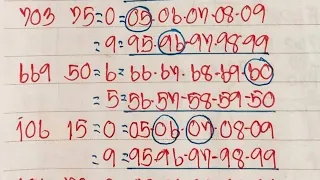 703 75=0=05-06-07-08-09
9=95-96-97-98-99
669 50=6=66-67-68-69-60
5=56-57-58-59-50
106 15=0=05-06-07-08-09
9=95-96-97-98-99